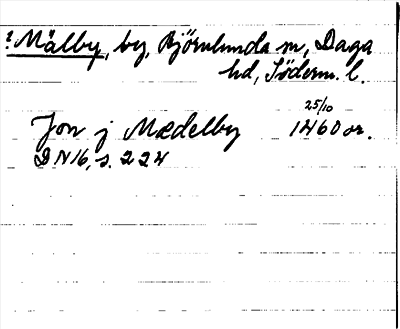 ? Mälby, by, Björnlunda sn, Daga
hd, Söderm. l.
25/10
Jon j Mædelby 1460 or.
DN16, s. 224